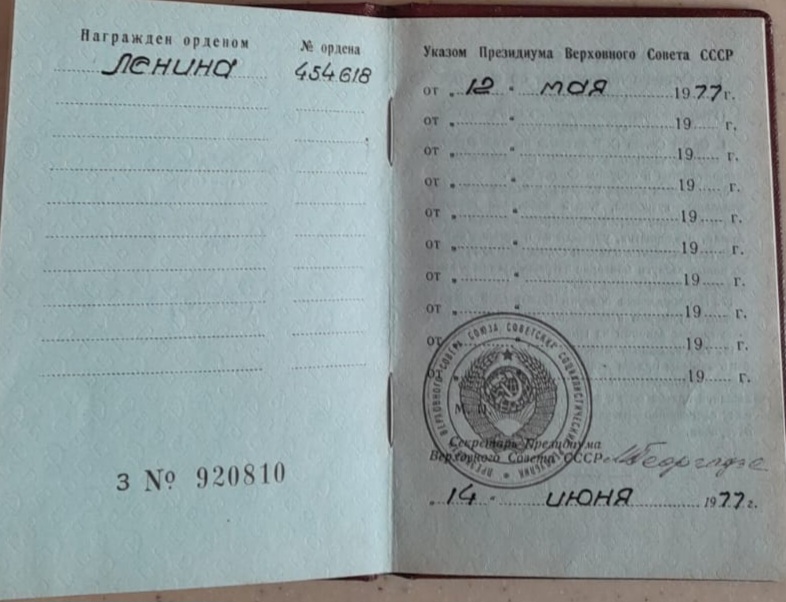 Награжден орденом
№ ордена
Ленина
454618
З № 920810
Указом Президиума Верховного Совета СССР
от „ 12 “ мая 1977 г.
от „ “ 19 г.
от „ “ 19 г.
от „ “ 19 г.
от „ “ 19 г.
от „ “ 19 г.
от „ “ 19 г.
от „ “ 19 г.
от „ “ 19 г.
от „ “ 19 г.
ПРЕЗИДИУМ ВЕРХОВНОГО СОВЕТА СОЮЗА СОВЕТСКИХ СОЦИАЛИСТИЧЕСКИХ РЕСПУБЛИК
М. П.
Секретарь Президиума
Верховного Совета СССР МГеоргадзе
„ 14 “ июня 1977 г.